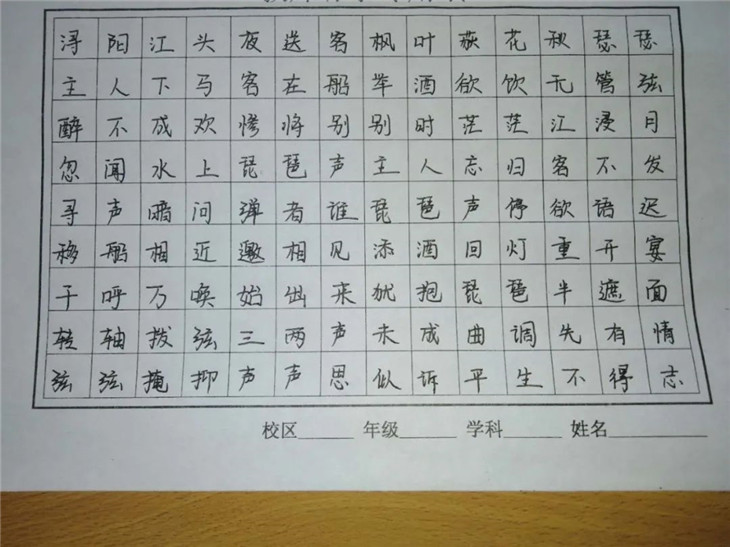 浔阳江头夜送客枫叶荻花秋瑟瑟
主人下马客在船举酒欲饮无管弦
醉不成欢惨将别别时茫茫江浸月
忽闻水上琵琶声主人忘归客不发
寻声暗问弹者谁琵琶声停欲语迟
移船相近邀相见添酒回灯重开宴
千呼万唤始出来犹抱琵琶半遮面
转轴拨弦三两声未成曲调先有情
弦弦掩抑声声思似诉平生不得志
校区______ 年级______ 学科______ 姓名__________